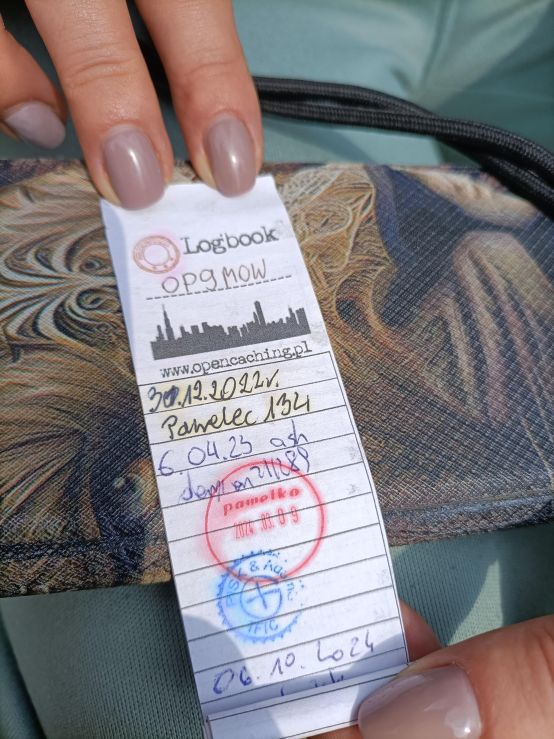 Logbook
OP9MOW
www.opencaching.pl
30.12.2022r.
Pawelec 134
6.04.23
pamelka
2024 03. 09
06.10.2024